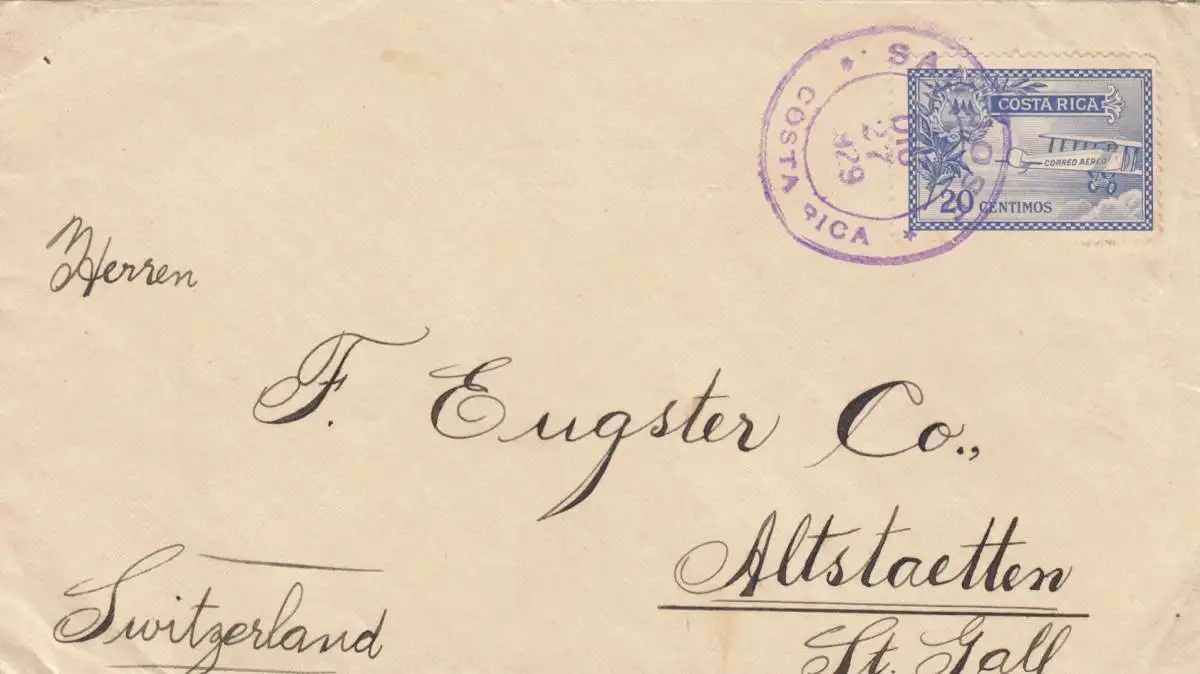 COSTA RICA
DIC
27
929
COSTA RICA
CORREO AEREO
20 CENTIMOS
Herren
F. Eugster Co.,
Altstaetten
Switzerland
St. Gall